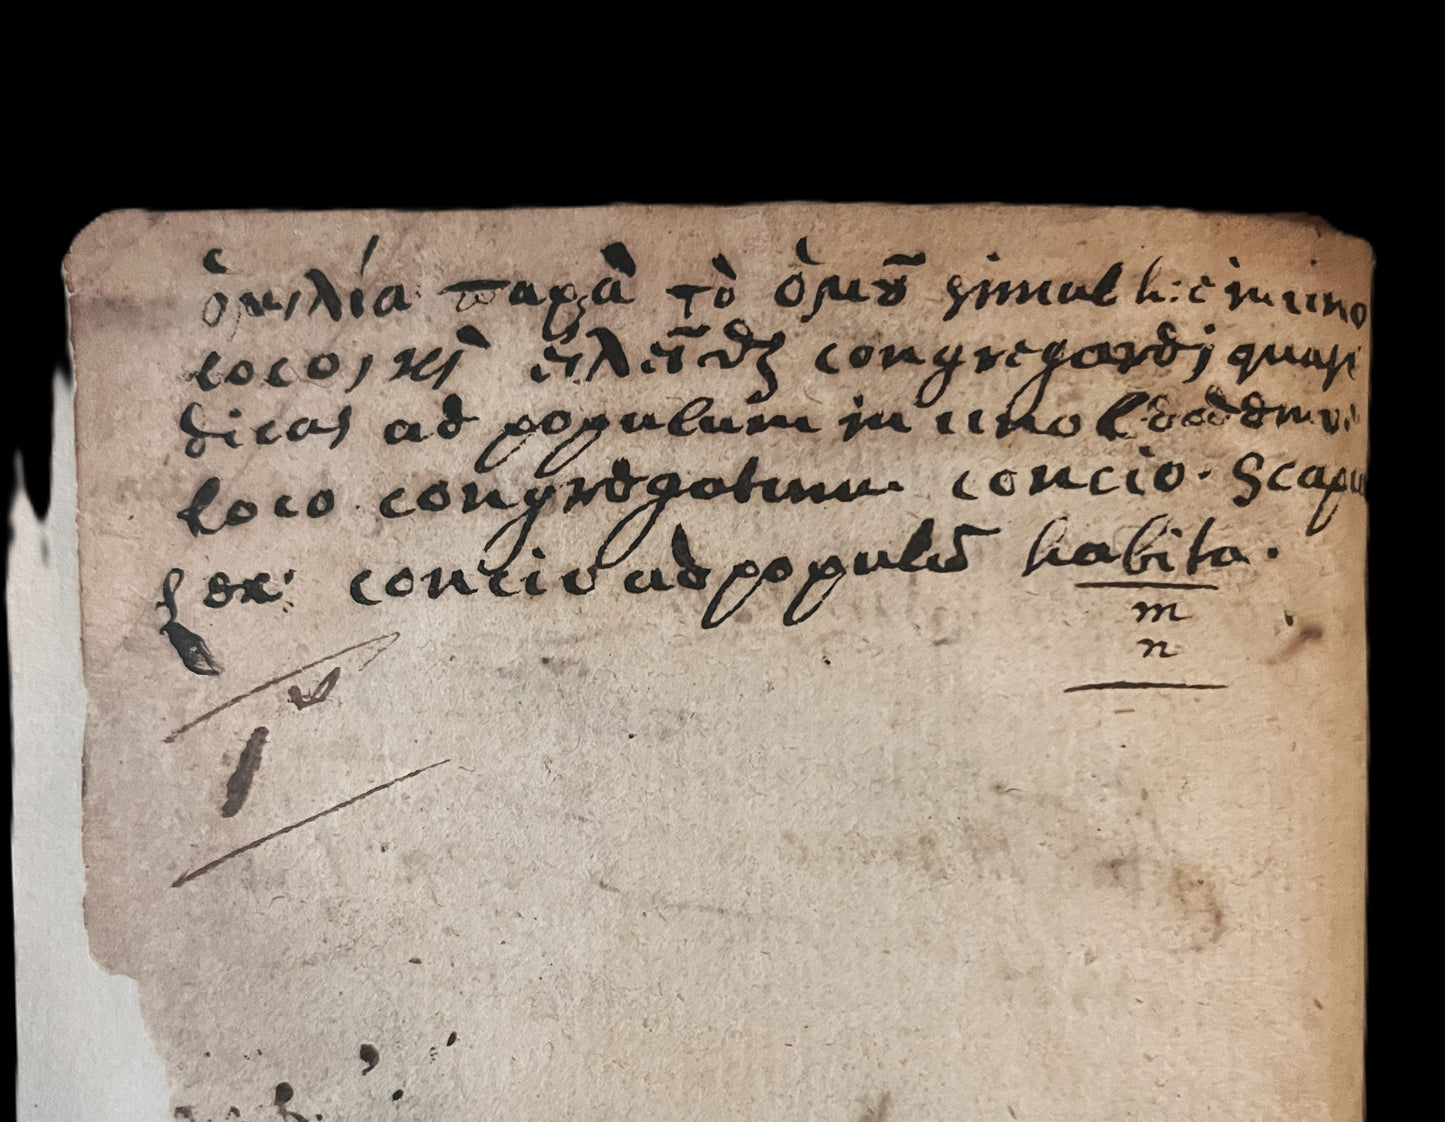 ὁμιλία παρὰ τὸ ὁμοῦ simul h: e in uno
loco, κὶ congregardj quasi
dicas ad populum in uno
loco congregatum concio. Scapu
Lex: concio ad populū habita.
m
n